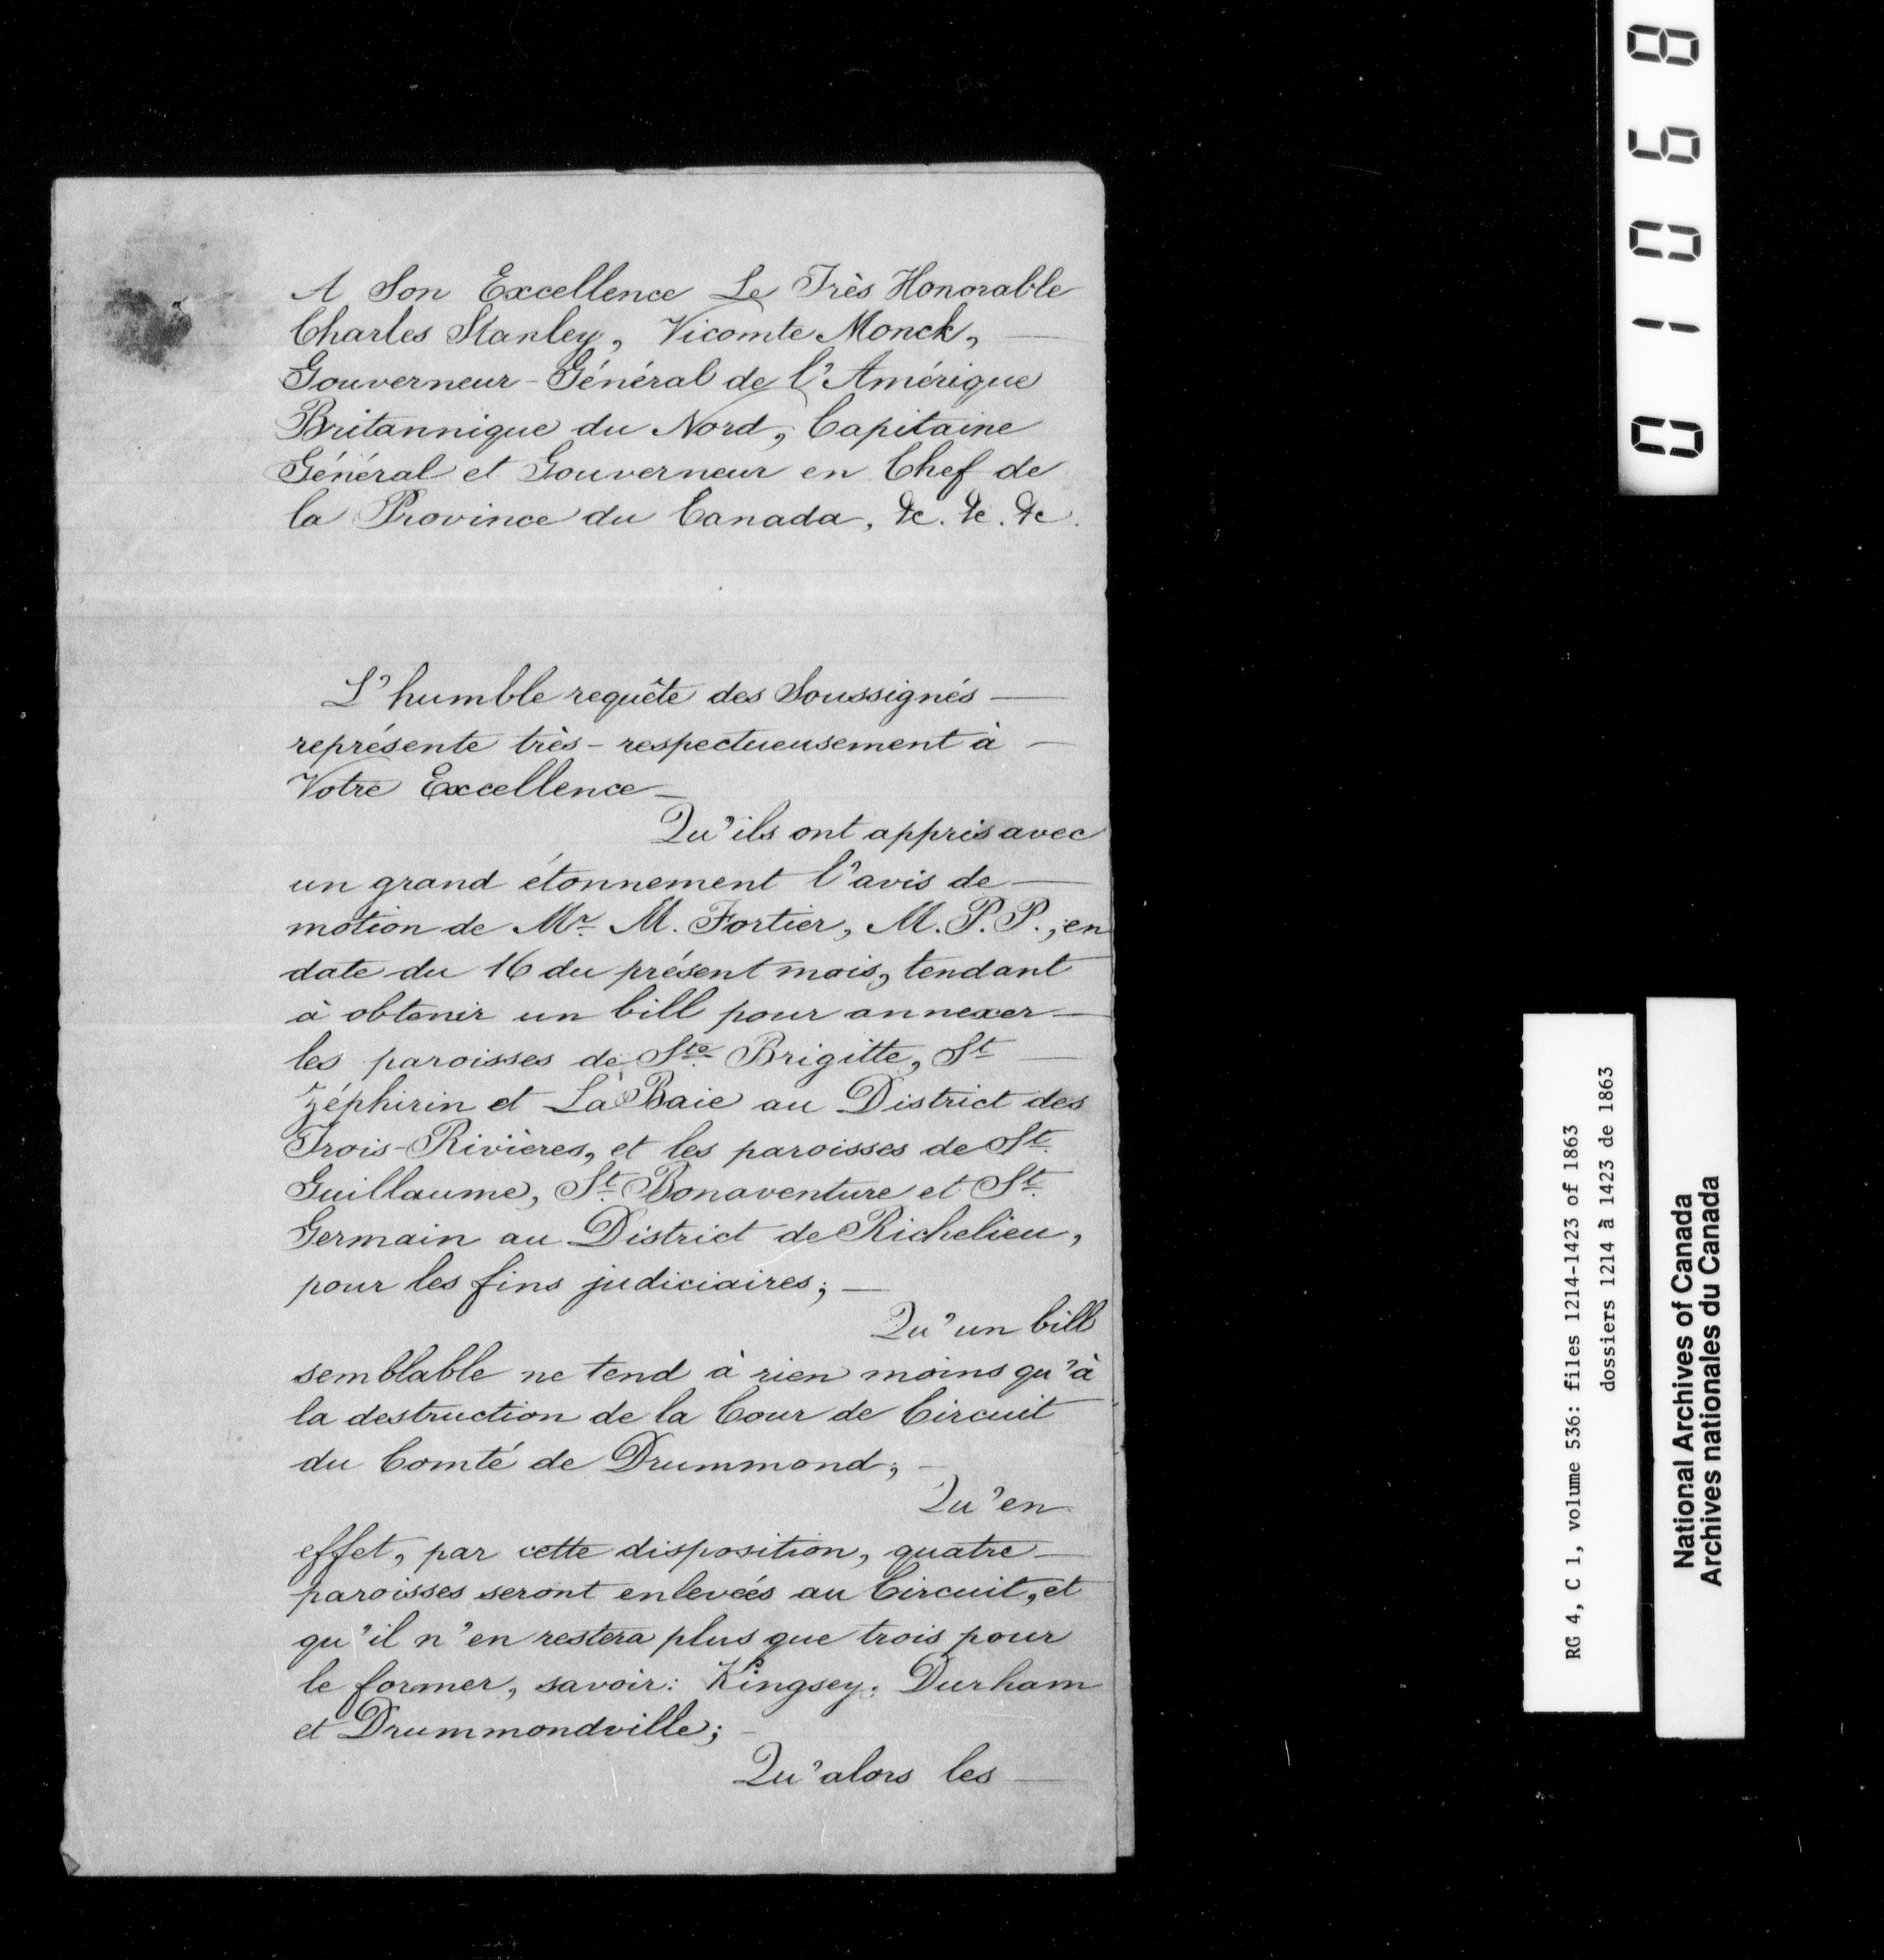 A Son Excellence Le Très Honorable
Charles Stanley, Vicomte Monck,
Gouverneur-Général de l'Amérique
Britannique du Nord, Capitaine
Général et Gouverneur en Chef de
la Province du Canada, &c. &c. &c.
L'humble requête des Soussignés
représente très-respectueusement à
Votre Excellence
Qu'ils ont appris avec
un grand étonnement l'avis de
motion de Mr. M. Fortier, M.P.P., en
date du 16 du présent mois, tendant
à obtenir un bill pour annexer
les paroisses de Ste Brigitte, St
Zéphirin et La Baie au District des
Trois-Rivières, et les paroisses de St.
Guillaume, St. Bonaventure et St.
Germain au District de Richelieu,
pour les fins judiciaires;
Qu'un bill
semblable ne tend à rien moins qu'à
la destruction de la Cour de Circuit
du Comté de Drummond;
Qu'en
effet, par cette disposition, quatre
paroisses seront enlevées au Circuit, et
qu'il n'en restera plus que trois pour
le former, savoir: Kingsey, Durham
et Drummondville;
Qu'alors les
01068
RG 4, C 1, volume 536: files 1214-1423 of 1863
dossiers 1214 à 1423 de 1863
National Archives of Canada
Archives nationales du Canada